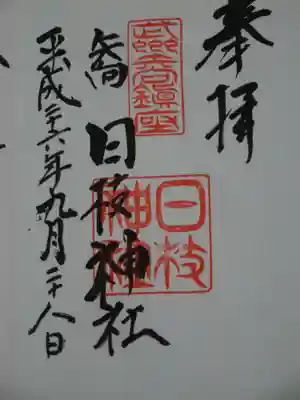 奉拝
日枝神社
日枝
神社
平成二十六年九月二十八日